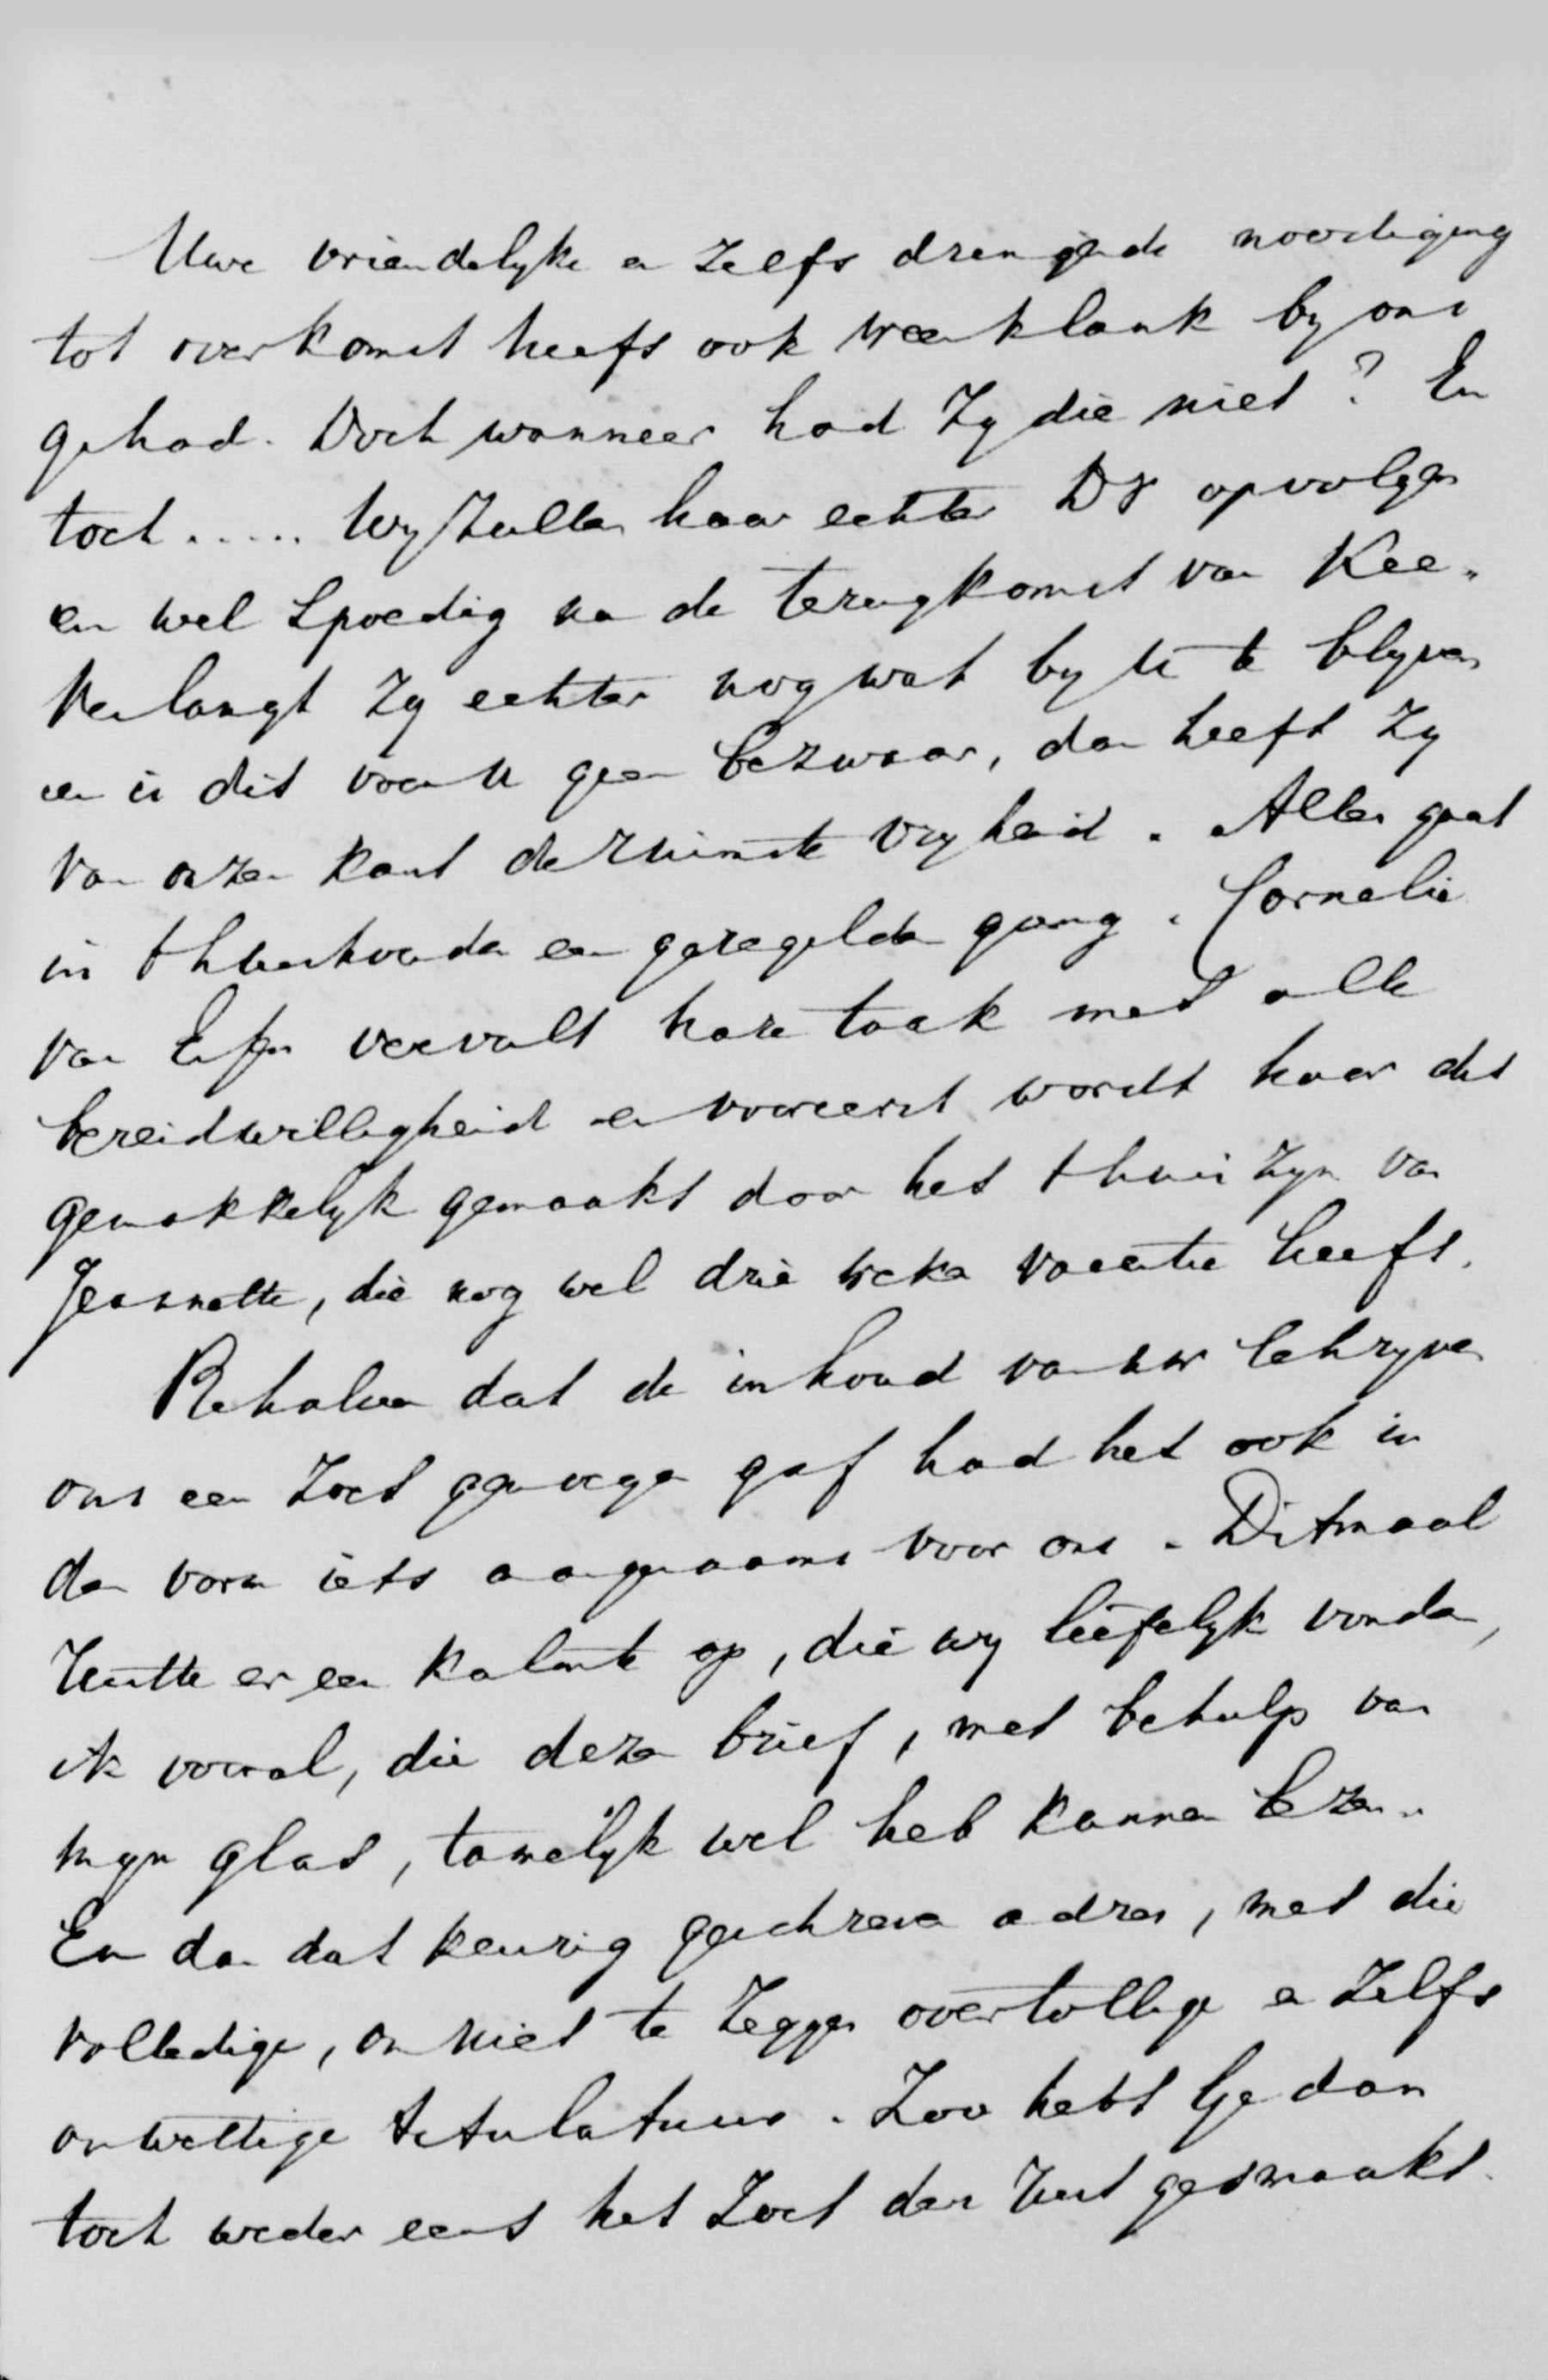 Uwe vriendelyke en zelfs dringende noodiging
tot overkomst heeft ook weerklank by ons
gehad. Doch wanneer had Zy die niet? En
toch..... Wy zullen haar echter DV opvolgen
en wel spoedig na de terugkomst van Kee.
Verlangt Zy echter nog wat by U te blyven
en is dit voor U geen bezwaar, dan heeft Zy
van onzen kant de ruimste vryheid. Alles gaat
in t huishouden een geregelden gang. Cornelie
van vervult hare taak met alle
bereidwilligheid en vooreerst wordt haar dit
gemakkelyk gemaakt door het thuis zyn van
Jeannette, die nog wel drie weken vacantie heeft.
Behalve dat de inhoud van uw schryven
ons een zoet genoegen gaf had het ook in
den vorm iets aangenaams voor ons. Ditmaal
rustte er een kalmte op, die wy liefelyk vonden,
ik vooral, die dezen brief, met behulp van
myn glas, tamelyk wel heb kunnen lezen.
En dan dat keurig geschreven adres, met die
volledige, om niet te zeggen overtollige en zelfs
onwettige titulatuur. Zoo hebt Ge dan
toch weder eens het zoet der rust gesmaakt.